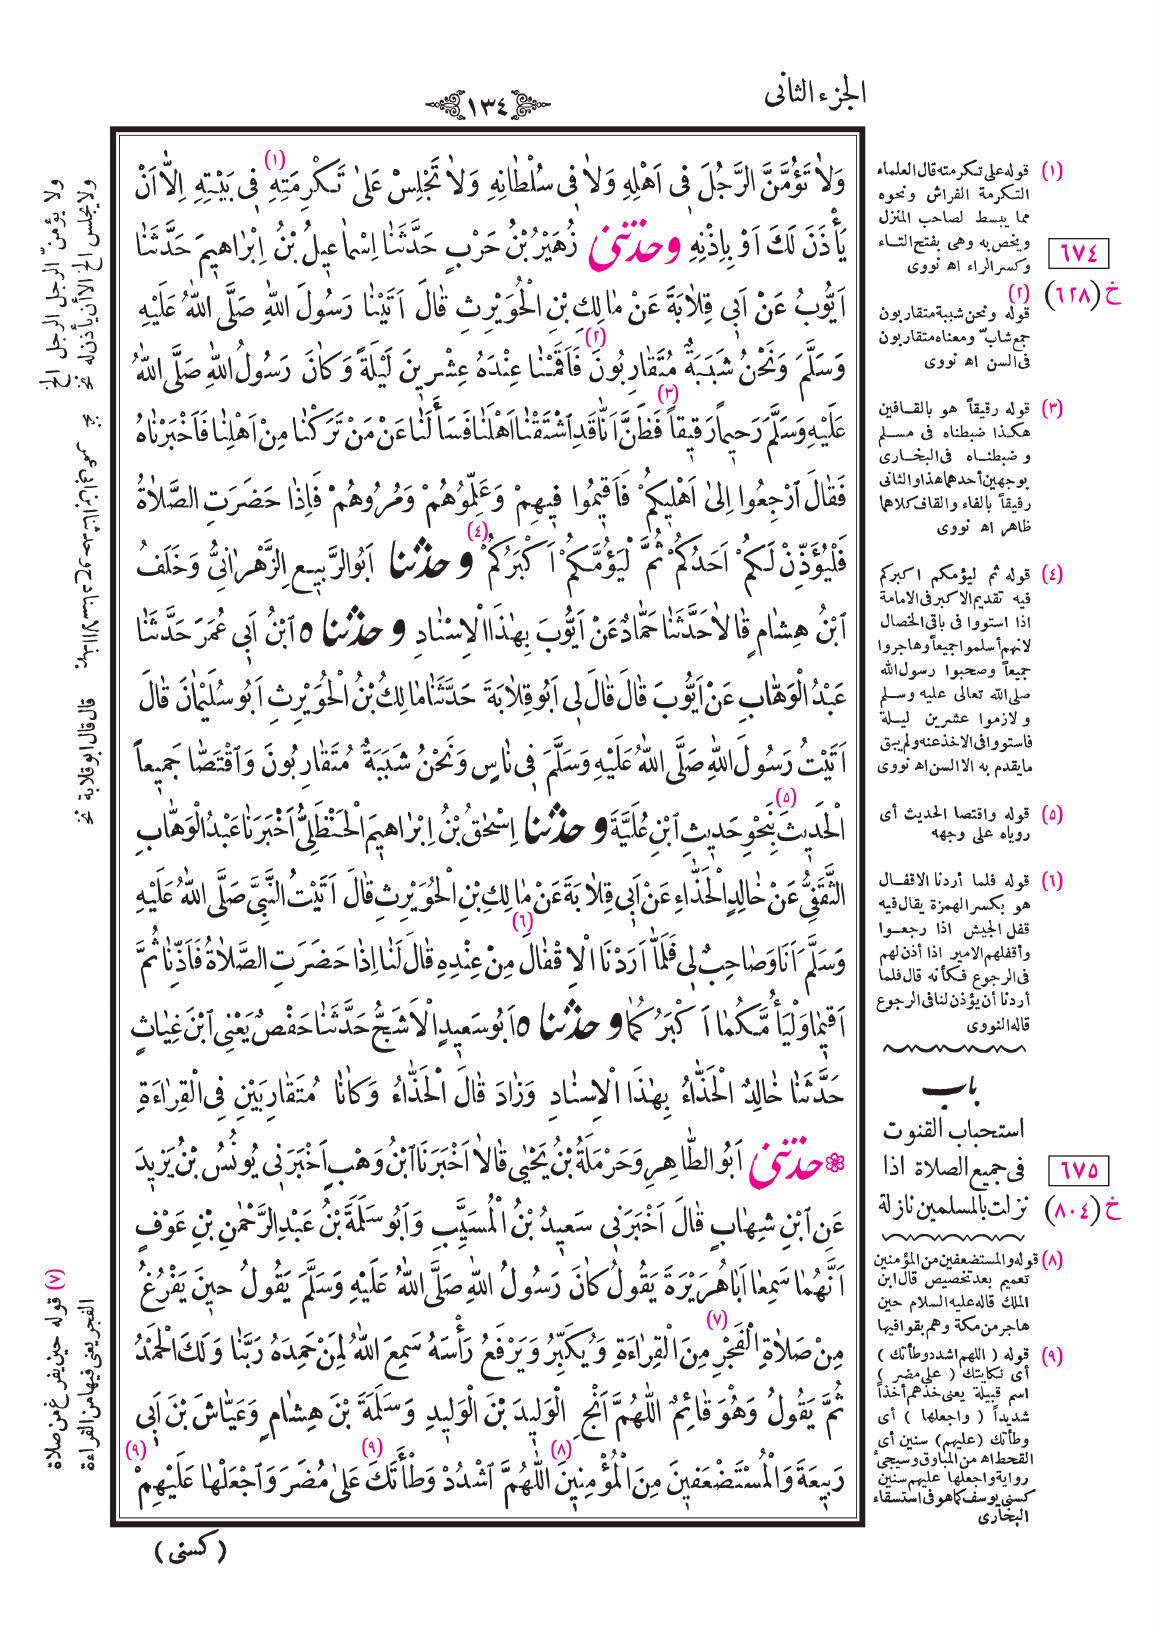 الجزء الثانى
١٣٤
وَلاٰ تَؤُمَّنَّ الرَّجُلَ فِى اَهْلِهِ وَلاٰ فِى سُلْطَانِهِ وَلاٰ تَجْلِسْ عَلىٰ تَكْرِمَتِهِ (١) فِى بَيْتِهِ اِلاّٰ اَنْ
يَأْذَنَ لَكَ اَوْ بِاِذْنِهِ وحدّثنى زُهَيْرُ بْنُ حَرْبٍ حَدَّثَنٰا اِسْمٰاعِيلُ بْنُ اِبْرٰاهِيمَ حَدَّثَنٰا
اَيُّوبُ عَنْ اَبِى قِلاٰبَةَ عَنْ مٰالِكِ بْنِ الْحُوَيْرِثِ قٰالَ اَتَيْنٰا رَسُولَ اللهِ صَلَّى اللهُ عَلَيْهِ
وَسَلَّمَ وَنَحْنُ شَبَبَةٌ مُتَقٰارِبُونَ (٢) فَاَقَمْنٰا عِنْدَهُ عِشْرِينَ لَيْلَةً وَكٰانَ رَسُولُ اللهِ صَلَّى اللهُ
عَلَيْهِ وَسَلَّمَ رَحِيماً رَقِيقاً (٣) فَظَنَّ اَنّٰا قَدِ اشْتَقْنٰا اَهْلَنٰا فَسَأَلَنٰا عَنْ مَنْ تَرَكْنٰا مِنْ اَهْلِنٰا فَاَخْبَرْنٰاهُ
فَقٰالَ ارْجِعُوا اِلىٰ اَهْلِيكُمْ فَاَقِيمُوا فِيهِمْ وَعَلِّمُوهُمْ وَمُرُوهُمْ فَاِذٰا حَضَرَتِ الصَّلاٰةُ
فَلْيُؤَذِّنْ لَكُمْ اَحَدُكُمْ ثُمَّ لْيَؤُمَّكُمْ اَكْبَرُكُمْ (٤) وحدّثنا اَبُو الرَّبِيعِ الزَّهْرٰانِىُّ وَخَلَفُ
ابْنُ هِشٰامٍ قٰالاٰ حَدَّثَنٰا حَمّٰادٌ عَنْ اَيُّوبَ بِهٰذَا الْاِسْنٰادِ وحدّثنا ٥ ابْنُ اَبِى عُمَرَ حَدَّثَنٰا
عَبْدُ الْوَهّٰابِ عَنْ اَيُّوبَ قٰالَ قٰالَ لِى اَبُو قِلاٰبَةَ حَدَّثَنٰا مٰالِكُ بْنُ الْحُوَيْرِثِ اَبُو سُلَيْمٰانَ قٰالَ
اَتَيْتُ رَسُولَ اللهِ صَلَّى اللهُ عَلَيْهِ وَسَلَّمَ فِى نٰاسٍ وَنَحْنُ شَبَبَةٌ مُتَقٰارِبُونَ وَاقْتَصّٰا جَمِيعاً
الْحَدِيثَ بِنَحْوِ حَدِيثِ ابْنِ عُلَيَّةَ (٥) وحدّثنا اِسْحٰقُ بْنُ اِبْرٰاهِيمَ الْحَنْظَلِىُّ اَخْبَرَنٰا عَبْدُ الْوَهّٰابِ
الثَّقَفِىُّ عَنْ خٰالِدٍ الْحَذّٰاءِ عَنْ اَبِى قِلاٰبَةَ عَنْ مٰالِكِ بْنِ الْحُوَيْرِثِ قٰالَ اَتَيْتُ النَّبِىَّ صَلَّى اللهُ عَلَيْهِ
وَسَلَّمَ اَنَا وَصٰاحِبٌ لِى فَلَمّٰا اَرَدْنَا الْاِقْفٰالَ (٦) مِنْ عِنْدِهِ قٰالَ لَنٰا اِذٰا حَضَرَتِ الصَّلاٰةُ فَاَذِّنٰا ثُمَّ
اَقِيمٰا وَلْيَأُمَّكُمٰا اَكْبَرُكُمٰا وحدّثنا ٥ اَبُو سَعِيدٍ الْاَشَجُّ حَدَّثَنٰا حَفْصٌ يَعْنِى ابْنَ غِيٰاثٍ
حَدَّثَنٰا خٰالِدٌ الْحَذّٰاءُ بِهٰذَا الْاِسْنٰادِ وَزٰادَ قٰالَ الْحَذّٰاءُ وَكٰانٰا مُتَقٰارِبَيْنِ فِى الْقِرٰاءَةِ
حدّثنى اَبُو الطّٰاهِرِ وَحَرْمَلَةُ بْنُ يَحْيٰى قٰالاٰ اَخْبَرَنَا ابْنُ وَهْبٍ اَخْبَرَنِى يُونُسُ بْنُ يَزِيدَ
عَنِ ابْنِ شِهٰابٍ قٰالَ اَخْبَرَنِى سَعِيدُ بْنُ الْمُسَيَّبِ وَاَبُو سَلَمَةَ بْنُ عَبْدِ الرَّحْمٰنِ بْنِ عَوْفٍ
اَنَّهُمٰا سَمِعٰا اَبٰا هُرَيْرَةَ يَقُولُ كٰانَ رَسُولُ اللهِ صَلَّى اللهُ عَلَيْهِ وَسَلَّمَ يَقُولُ حِينَ يَفْرُغُ
مِنْ صَلاٰةِ الْفَجْرِ (٧) مِنَ الْقِرٰاءَةِ وَيُكَبِّرُ وَيَرْفَعُ رَأْسَهُ سَمِعَ اللهُ لِمَنْ حَمِدَهُ رَبَّنٰا وَلَكَ الْحَمْدُ
ثُمَّ يَقُولُ وَهُوَ قٰائِمٌ اَللّٰهُمَّ اَنْجِ الْوَلِيدَ بْنَ الْوَلِيدِ وَسَلَمَةَ بْنَ هِشٰامٍ وَعَيّٰاشَ بْنَ اَبِى
رَبِيعَةَ وَالْمُسْتَضْعَفِينَ مِنَ الْمُؤْمِنِينَ (٨) اَللّٰهُمَّ اشْدُدْ وَطْأَتَكَ (٩) عَلىٰ مُضَرَ وَاجْعَلْهٰا عَلَيْهِمْ (٩)
( كسنى )
(١) قوله على تكرمته قال العلماء
التكرمة الفراش ونحوه
مما يبسط لصاحب المنزل
ويخص به وهى بفتح التاء
وكسر الراء اه نووى
٦٧٤
خ (٦٢٨)
(٢)
قوله ونحن شببة متقاربون
جمع شابّ ومعناه متقاربون
فى السن اه نووى
(٣) قوله رقيقاً هو بالقافين
هكذا ضبطناه فى مسلم
وضبطناه فى البخارى
بوجهين أحدهما هذا والثانى
رفيقاً بالفاء والقاف كلاهما
ظاهر اه نووى
(٤) قوله ثم ليؤمكم اكبركم
فيه تقديم الاكبر فى الامامة
اذا استووا فى باقى الخصال
لانهم أسلموا جميعاً وهاجروا
جميعاً وصحبوا رسول الله
صلى الله تعالى عليه وسلم
ولازموا عشرين ليلة
فاستووا فى الاخذ عنه ولم يبق
ما يقدم به الا السن اه نووى
(٥) قوله واقتصا الحديث أى
روياه على وجهه
(٦) قوله فلما أردنا الاقفال
هو بكسر الهمزة يقال فيه
قفل الجيش اذا رجعوا
وأقفلهم الامير اذا أذن لهم
فى الرجوع فكأنه قال فلما
أردنا أن يؤذن لنا فى الرجوع
قاله النووى
باب
استحباب القنوت
فى جميع الصلاة اذا
نزلت بالمسلمين نازلة
٦٧٥
خ (٨٠٤)
(٨) قوله والمستضعفين من المؤمنين
تعميم بعد تخصيص قال ابن
الملك قاله عليه السلام حين
هاجر من مكة وهم بقوا فيها
(٩) قوله ( اللهم اشدد وطأتك )
أى نكايتك ( على مضر )
اسم قبيلة يعنى خذهم أخذاً
شديداً ( واجعلها ) أى
وطأتك (عليهم) سنين أى
القحط اه من المبارق وسيجىء
رواية واجعلها عليهم سنين
كسنى يوسف كما هو فى استسقاء
البخارى
ولا يؤمنّ الرجل الرجل الخ
ولا يجلس الخ الا أن يأذن له نخ
بهذا الاسناد ح وحدثنا ابن ابى عمر نخ
قال قال ابو قلابة نخ
(٧) قوله حين يفرغ من صلاة
الفجر يعنى فيها من القراءة